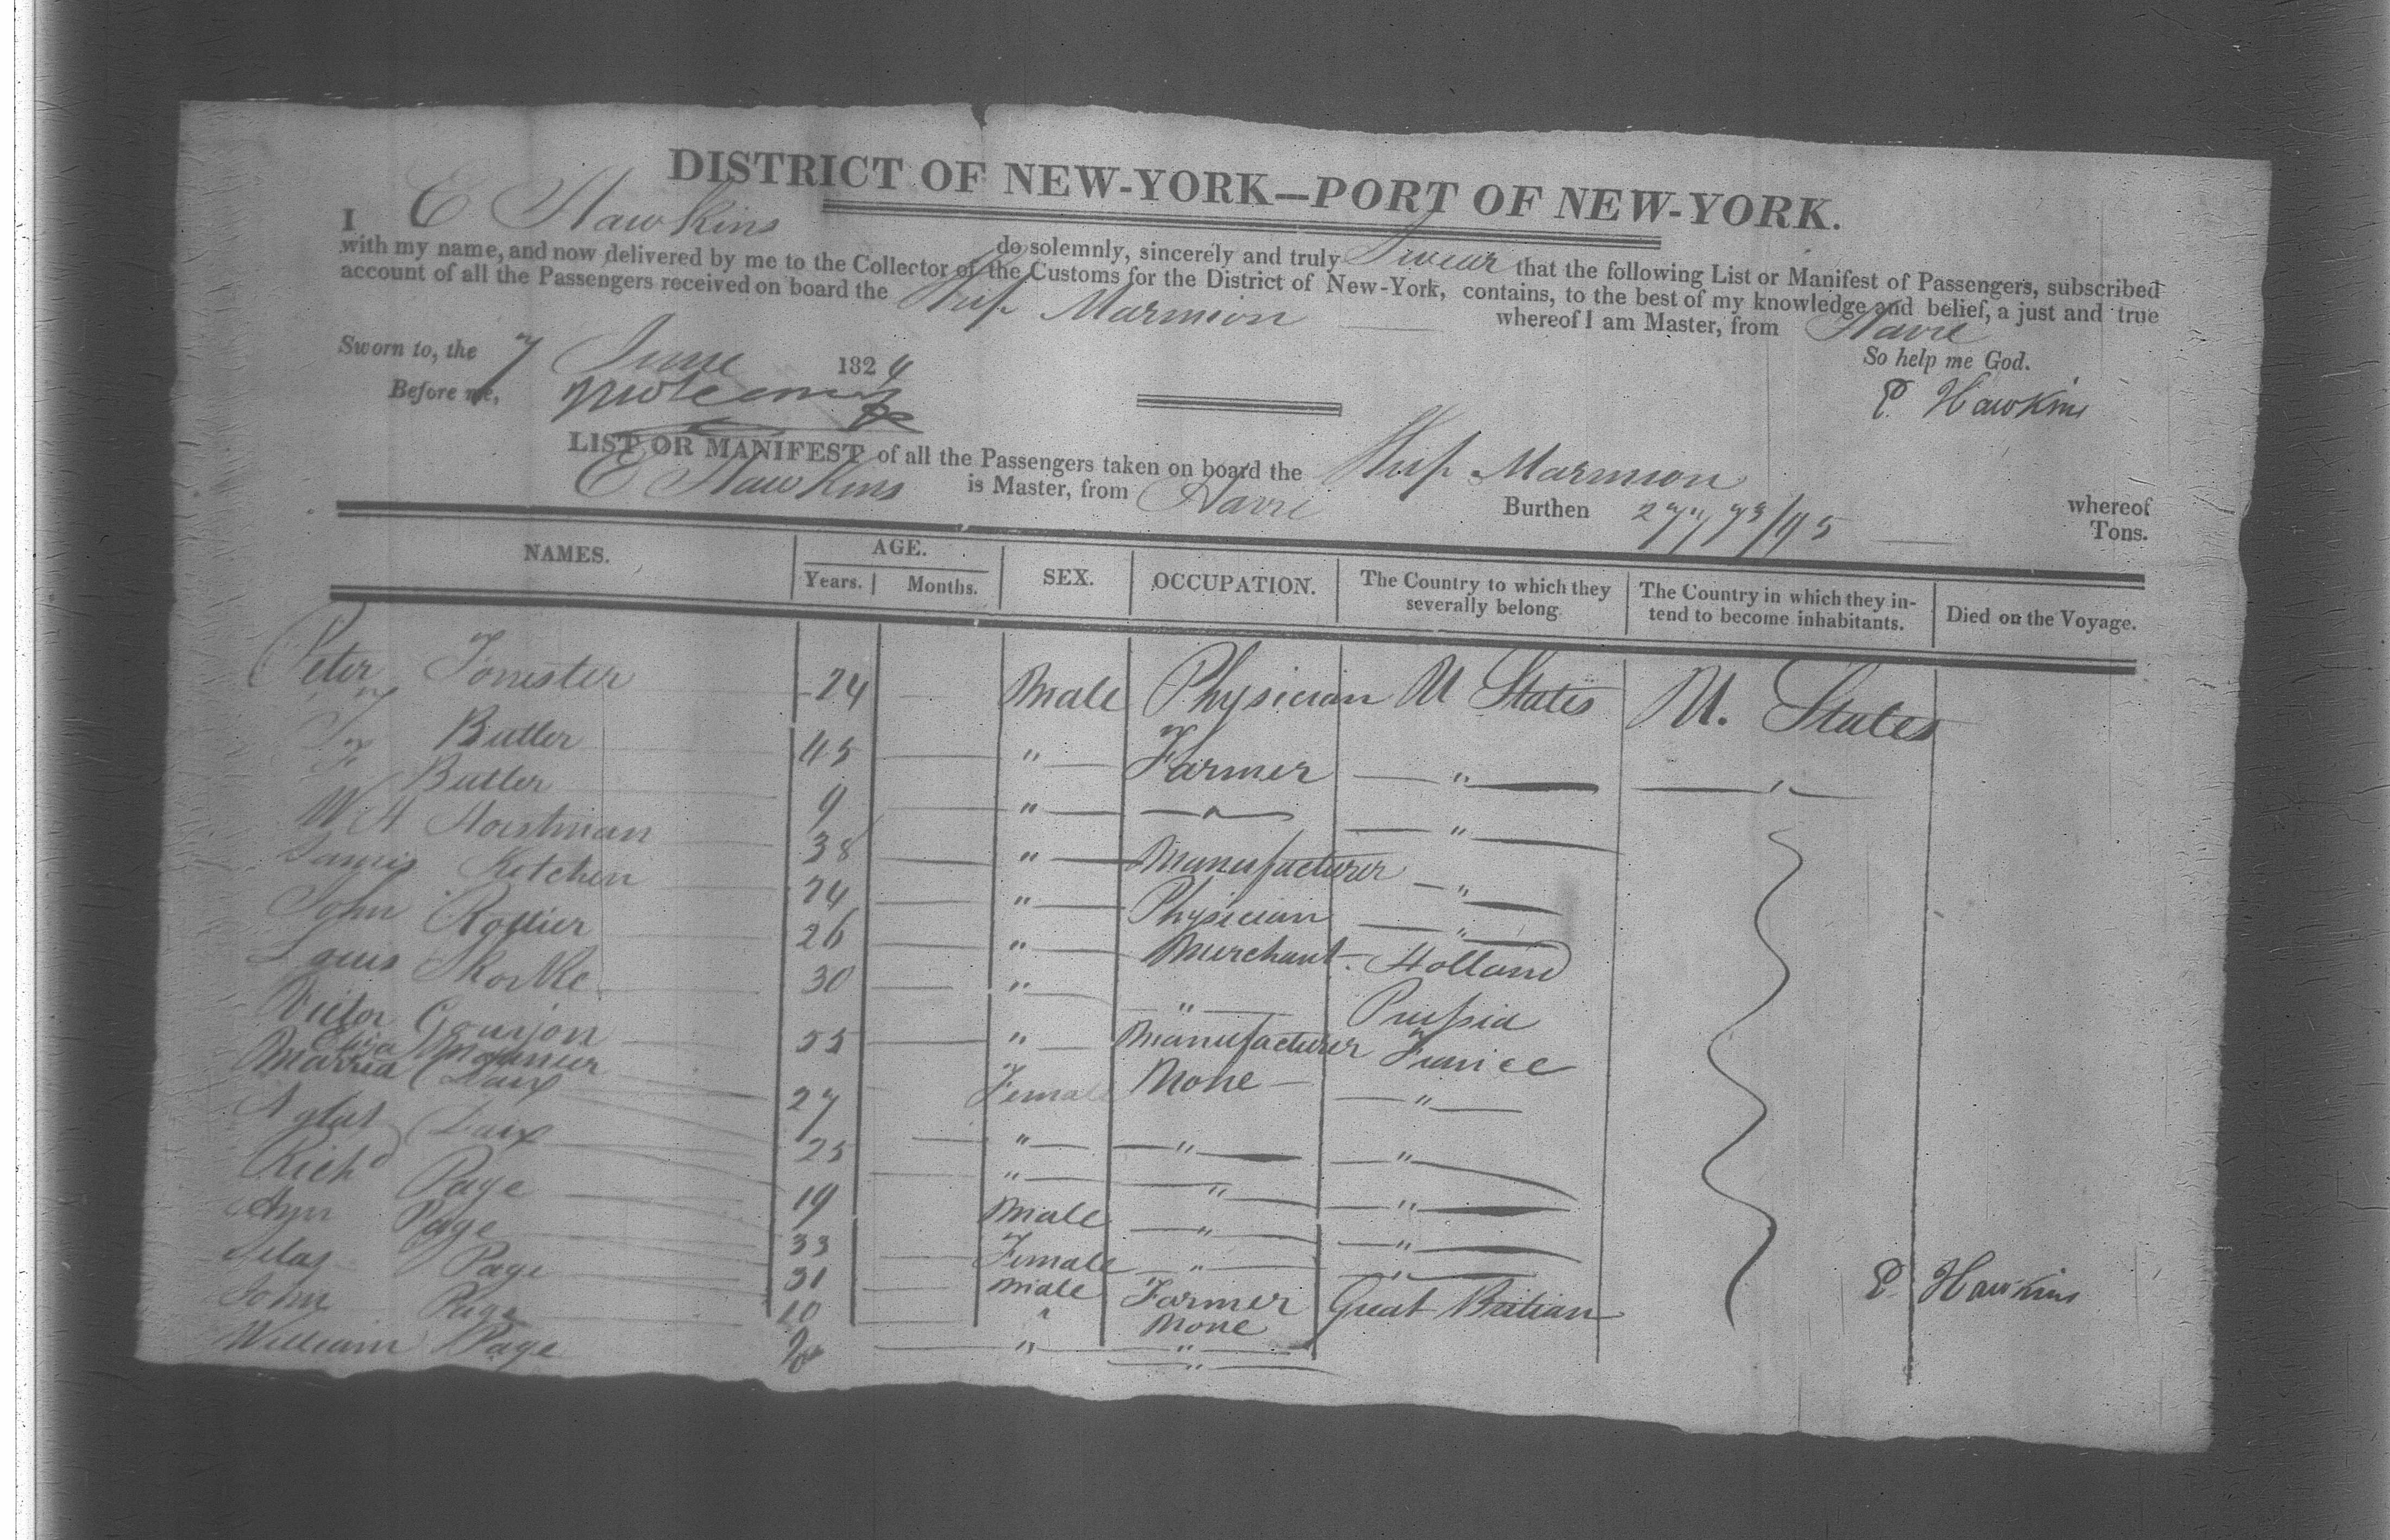 DISTRICT OF NEW-YORK—PORT OF NEW-YORK.
I E Hawkins do solemnly, sincerely and truly Swear that the following List or Manifest of Passengers, subscribed
with my name, and now delivered by me to the Collector of the Customs for the District of New-York, contains, to the best of my knowledge and belief, a just and true
account of all the Passengers received on board the Ship Marmion whereof I am Master, from Havre
Sworn to, the 7 June 1824 So help me God.
Before me, E Hawkins
LIST OR MANIFEST of all the Passengers taken on board the Ship Marmion whereof
E Hawkins is Master, from Havre Burthen 277 73/95 Tons.
NAMES. AGE. SEX. OCCUPATION. The Country to which they severally belong. The Country in which they intend to become inhabitants. Died on the Voyage.
Years. Months.
Peter Forrester 24 — Male Physician U States U. States
Butler 45 — " Farmer — " — — " —
Butler 9 — " — " — — " —
W H Horstman 38 — " Manufacturer — " —
James Kitchen 24 — " Physician — " —
John Rollier 26 — " Merchant Holland
Louis 30 — " — " — Prussia
Victor Goujon 55 — " Manufacturer France
Eliza
Marria Daix 27 Female None — " —
Daix 25 — " — " — — " —
Richd Page 19 — " — " — — " —
Ann Page 33 Male — " — — " —
Silas Page 31 — Female — " — — " —
John Page 10 — Male Farmer Great Britian E Hawkins
William Page — " None
" "